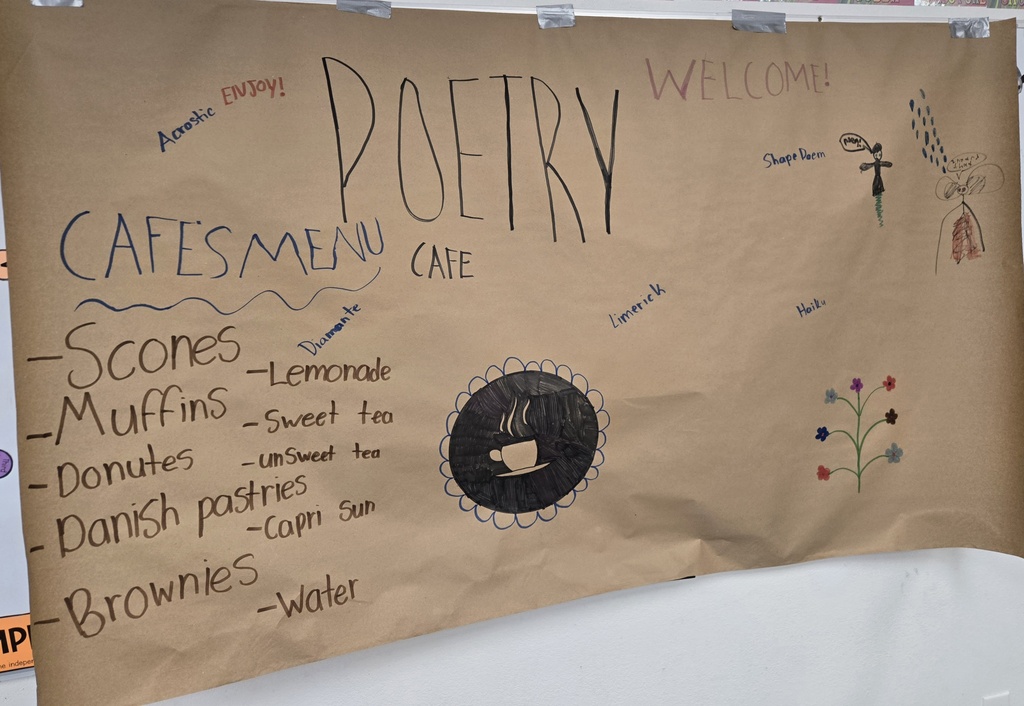 POETRY
CAFE
WELCOME!
ENJOY!
Acrostic
Shape Poem
CAFE'S MENU
Diamante
Limerick
Haiku
-Scones
-Muffins
-Donutes
-Danish pastries
-Brownies
-Lemonade
-Sweet tea
-unSweet tea
-Capri Sun
-Water